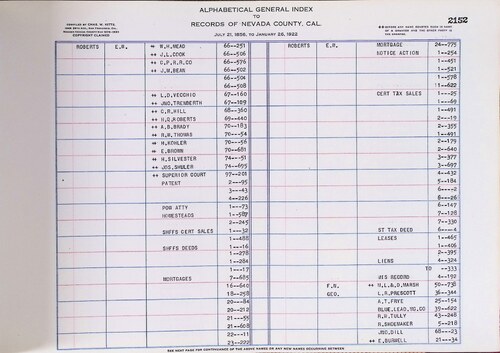 COMPILED BY CHAS. W. KITTS,
COPYRIGHT CLAIMED
ALPHABETICAL GENERAL INDEX
TO
RECORDS OF NEVADA COUNTY, CAL.
JULY 21, 1856, TO JANUARY 26, 1922
2152
ROBERTS E.W. ++ W.H.MEAD 66--251
++ J.L.COOK 66--506
++ C.P.R.R.CO 66--576
++ J.W.BEAN 66--502
66--504
66--508
++ L.D.VECCHIO 67--160
++ JNO.TRENBERTH 67--189
++ C.R.HILL 68--360
++ H.Q.ROBERTS 69--440
++ A.B.BRADY 70--183
++ R.W.THOMAS 70---54
++ H.KOHLER 70---56
++ E.BROWN 70--681
++ H.SILVESTER 74---51
++ JOS.SHULER 74--675
++ SUPERIOR COURT 97--201
PATENT 2---95
3---43
4--226
POW ATTY 1---73
HOMESTEADS 1--587
2--245
SHFFS CERT SALES 1---32
1--488
SHFFS DEEDS 1---16
1--278
1--284
1---17
MORTGAGES 6--685
16--640
18--258
20---84
20--212
21---55
21--608
22---11
23--222
ROBERTS E.W. MORTGAGE 24--775
NOTICE ACTION 1--254
1--491
1--521
1--578
11--622
CERT TAX SALES 1---25
1---69
1--491
2---19
2--355
1--491
2--179
2--640
3--377
3--697
4--432
5--184
6----2
8---26
6--147
7--128
7--330
ST TAX DEED 6----4
LEASES 1--465
1--406
2--395
LIENS 4--324
TO --333
MIS RECORD 4--192
E.W. ++ M.L.&D.MARSH 50--738
GEO. L.R.PRESCOTT 36--344
A.T.FRYE 25--154
BLUE.LEAD.MG.CO 39--622
R.H.TULLY 43--248
R.SHOEMAKER 5--218
JNO.DILL 68---23
++ E.BURWELL 21---34
SEE NEXT PAGE FOR CONTINUANCE OF THE ABOVE NAMES OR ANY NEW NAMES OCCURRING BETWEEN